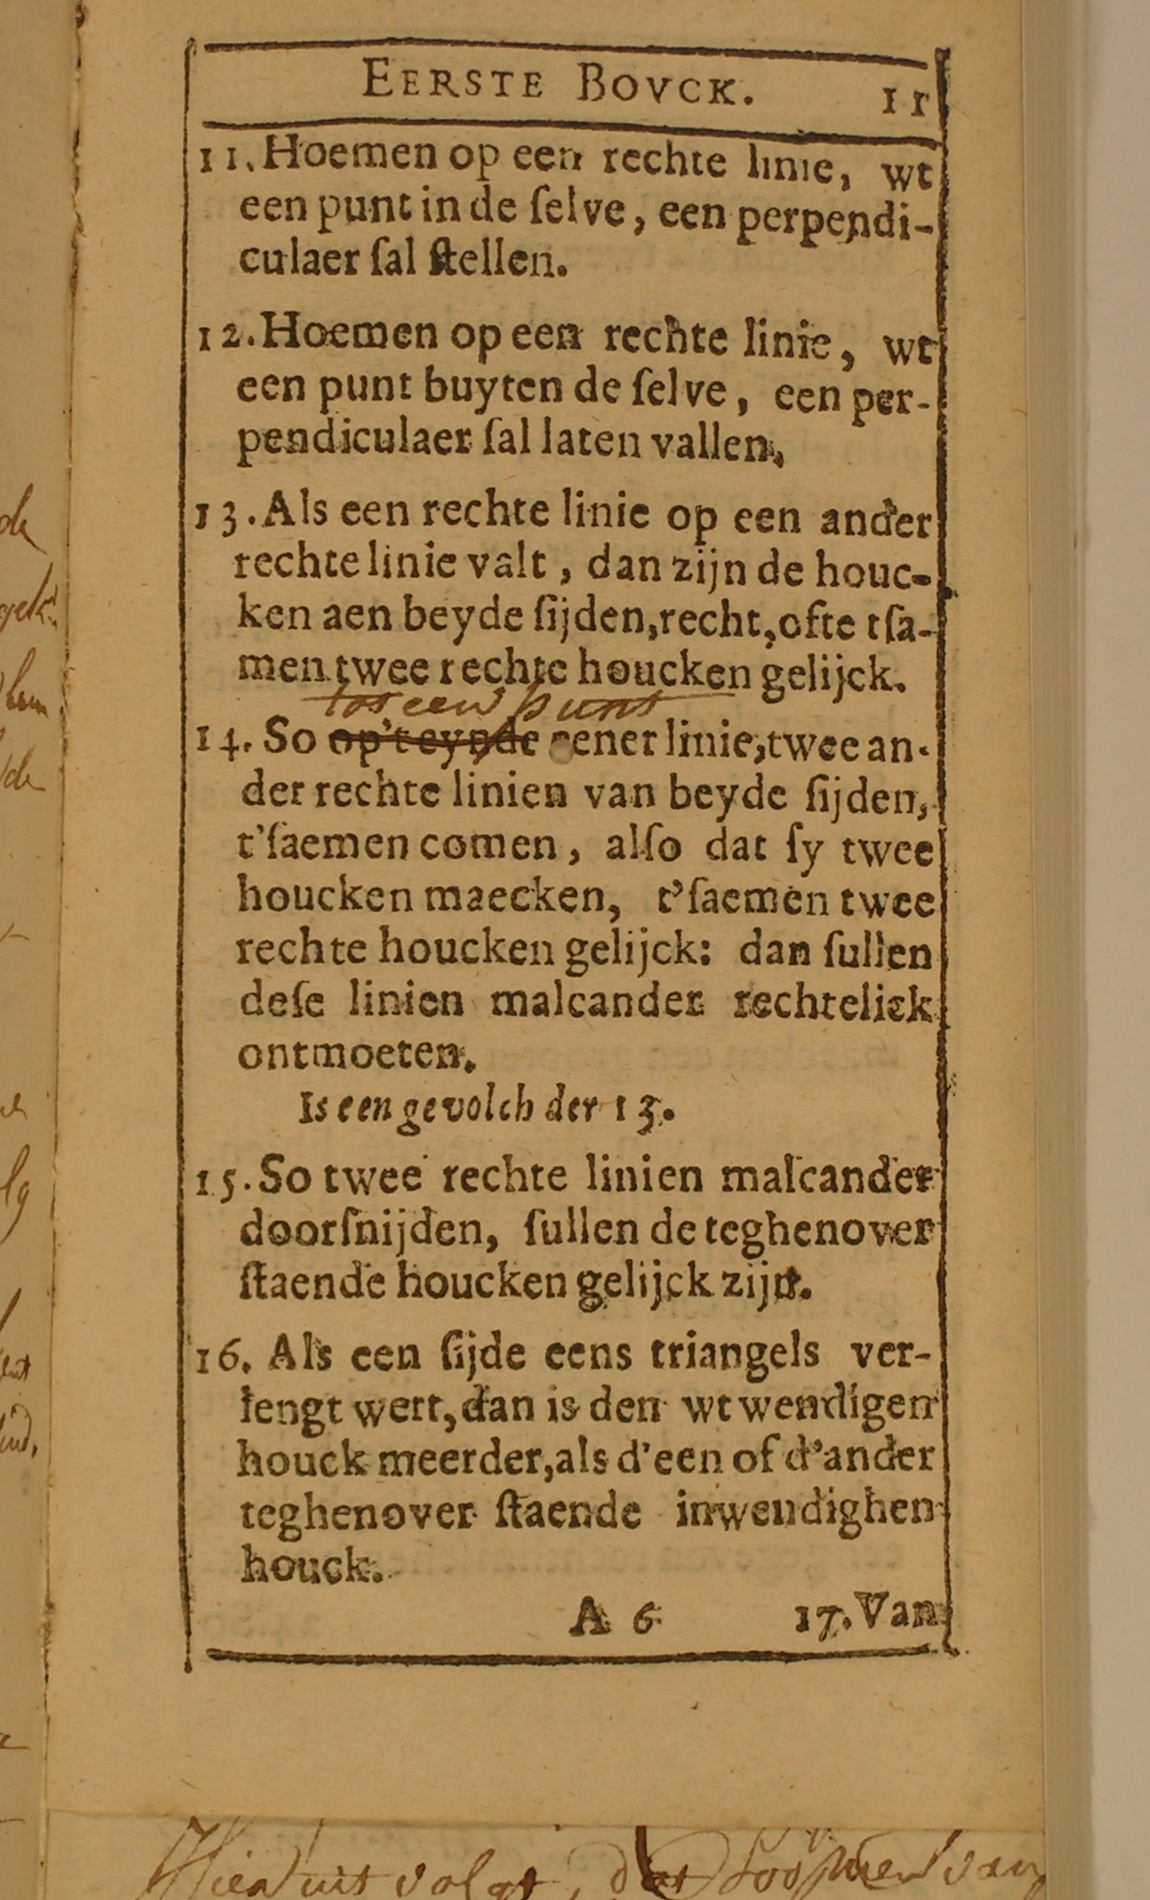 EERSTE BOVCK. 11
11. Hoemen op een rechte linie, wt
een punt in de ſelve, een perpendi-
culaer ſal ſtellen.
12. Hoemen op een rechte linie, wt
een punt buyten de ſelve, een per-
pendiculaer ſal laten vallen.
13. Als een rechte linie op een ander
rechte linie valt, dan zijn de houc-
ken aen beyde ſijden, recht, ofte tſa-
men twee rechte houcken gelijck.
tot een punt
14. So op't eynde eener linie, twee an-
der rechte linien van beyde ſijden,
t'ſaemen comen, alſo dat ſy twee
houcken maecken, t'ſaemen twee
rechte houcken gelijck: dan ſullen
deſe linien malcander rechtelick
ontmoeten.
Is een gevolch der 13.
15. So twee rechte linien malcander
doorſnijden, ſullen de teghenover
ſtaende houcken gelijck zijn.
16. Als een ſijde eens triangels ver-
lengt wert, dan is den wtwendigen
houck meerder, als d'een of d'ander
teghenover ſtaende inwendighen
houck.
A 6 17. Van
Hier uit volgt, dat van